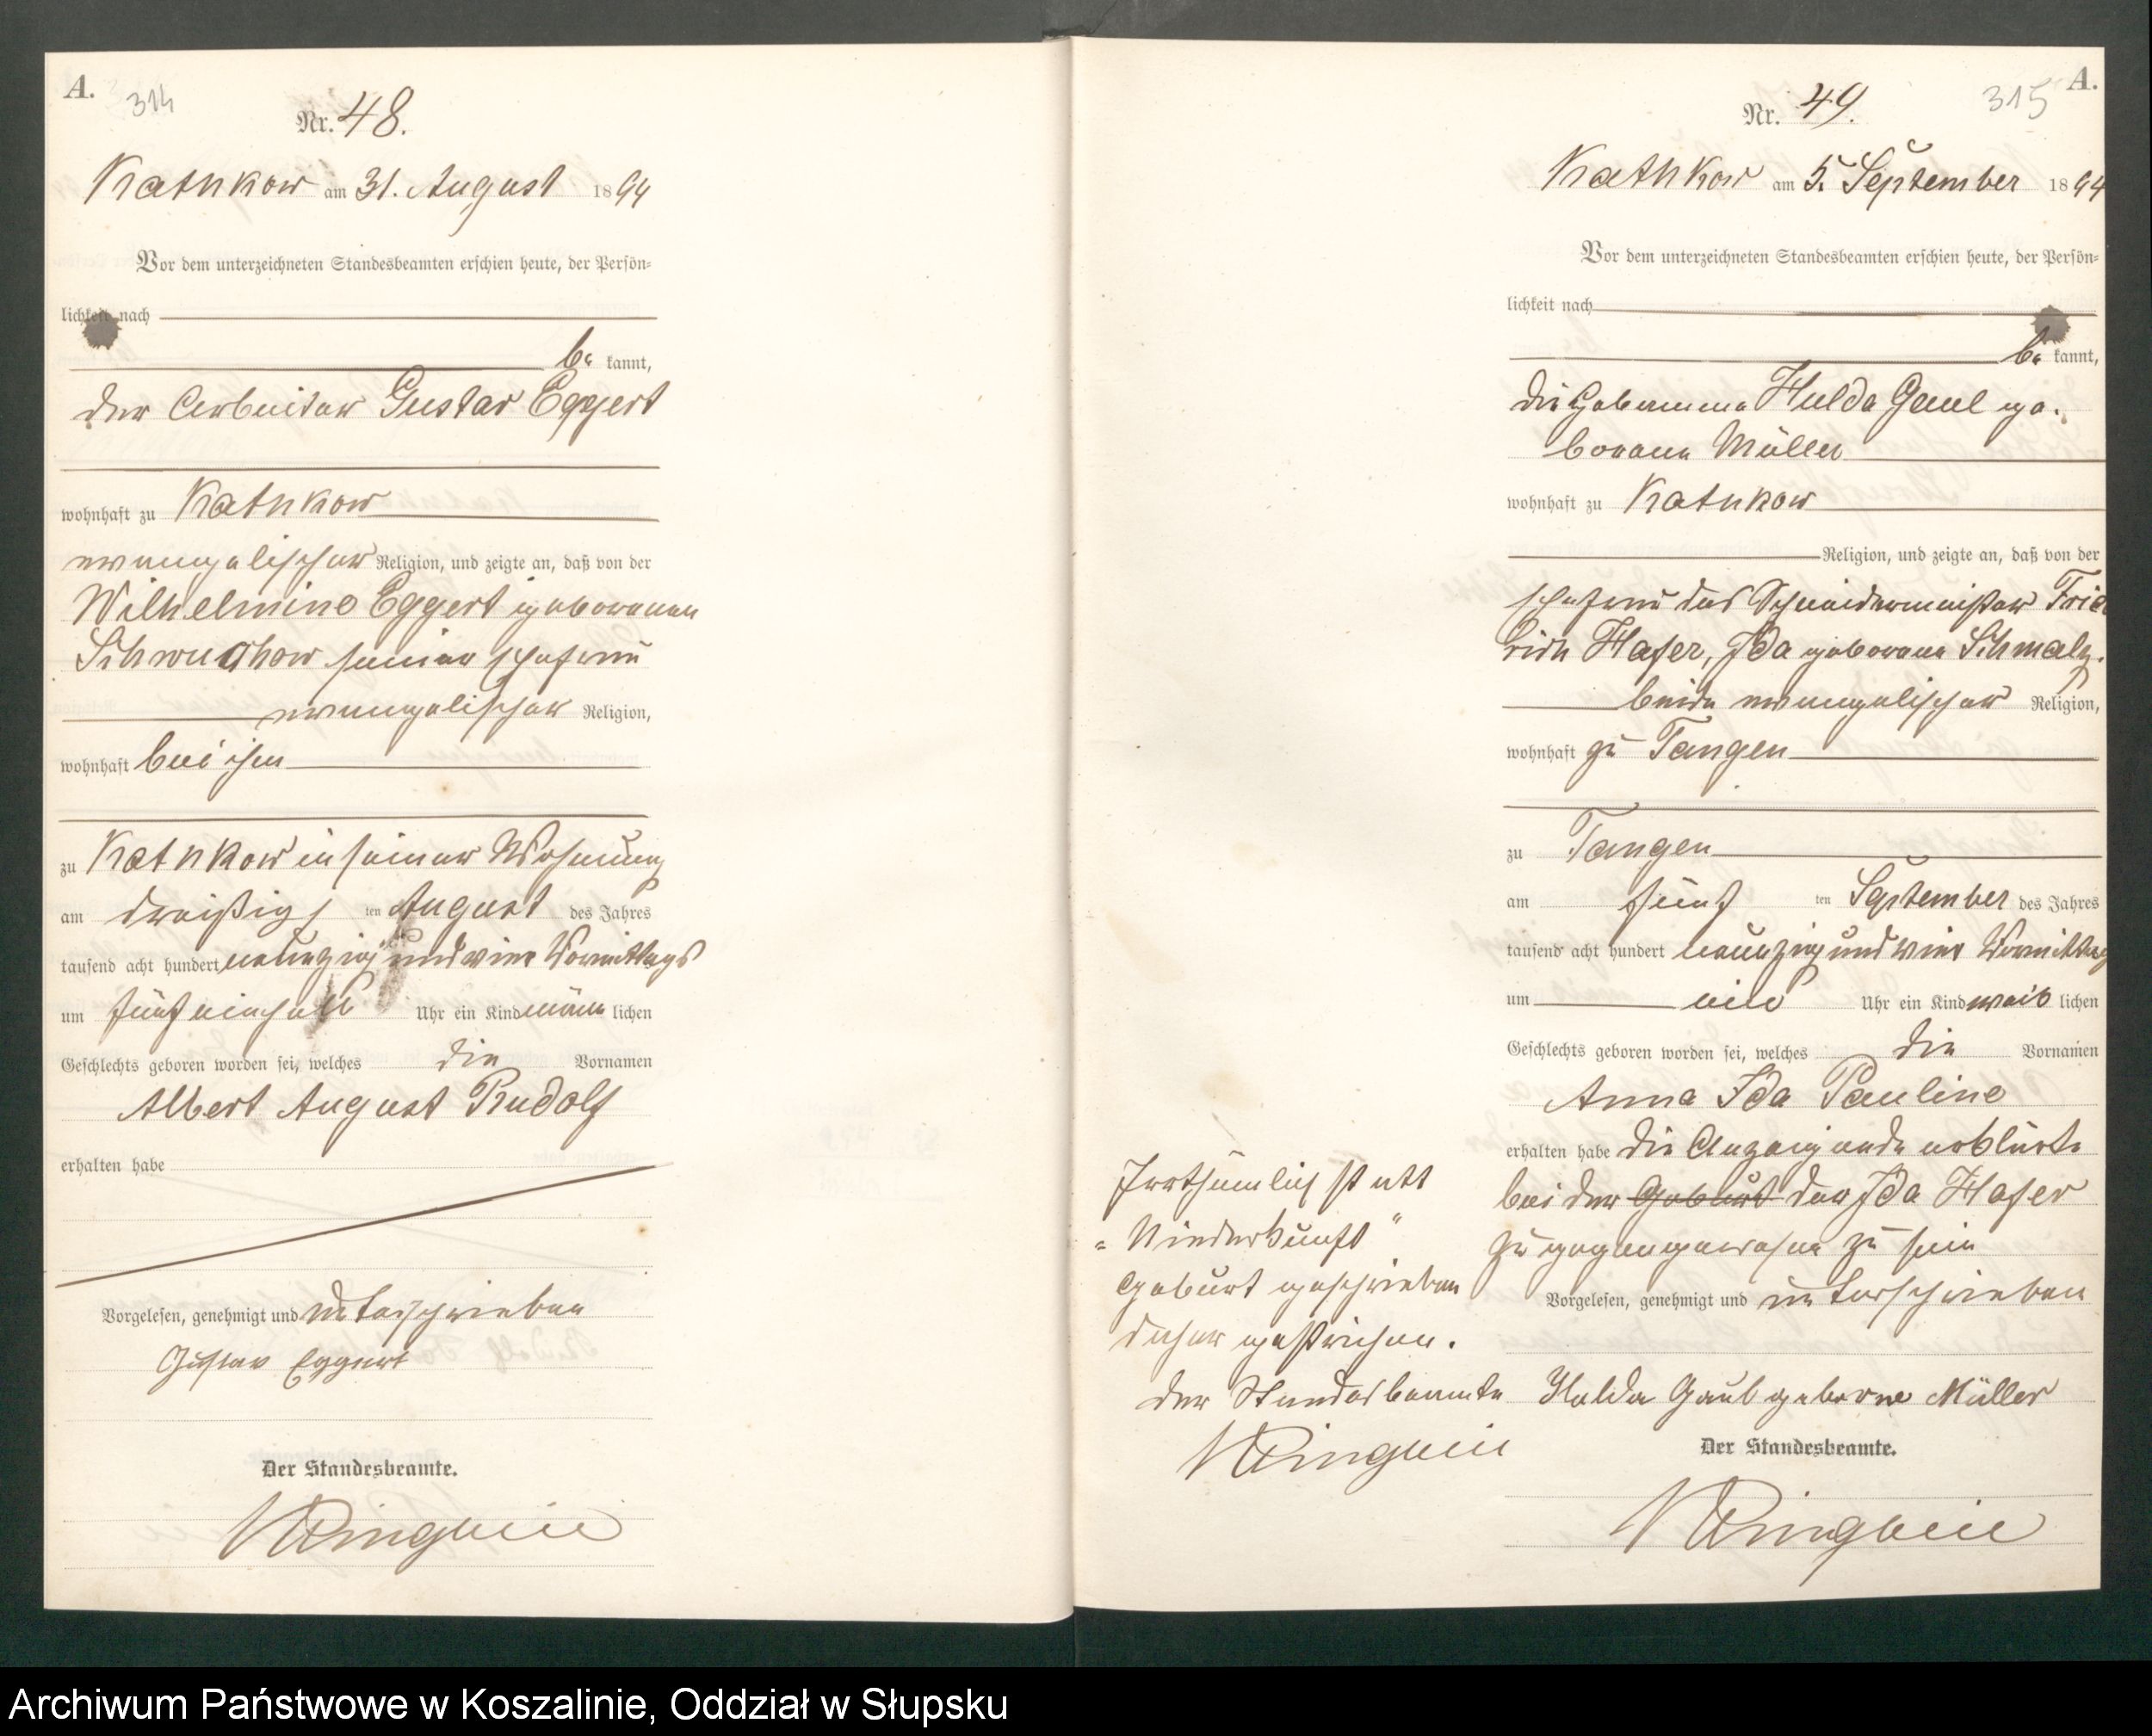 A.
314
Nr. 48.
Kathkow am 31. August 1894
Vor dem unterzeichneten Standesbeamten erschien heute, der Persön-
lichkeit nach
be kannt,
der Arbeiter Gustav Eggert
wohnhaft zu Kathkow
evangelischer Religion, und zeigte an, daß von der
Wilhelmine Eggert geborenen
Schwuchow seiner Ehefrau
evangelischer Religion,
wohnhaft bei ihm
zu Kathkow in seiner Wohnung
am dreißigsten August des Jahres
tausend acht hundert neunzig und vier Vormittags
um fünfeinhalb Uhr ein Kind männlichen
Geschlechts geboren worden sei, welches die Vornamen
Albert August Rudolf
erhalten habe
Vorgelesen, genehmigt und unterschrieben
Gustav Eggert
Der Standesbeamte.
A.
315
Nr. 49.
Kathkow am 5. September 1894
Vor dem unterzeichneten Standesbeamten erschien heute, der Persön-
lichkeit nach
be kannt,
die Hebamme Hulda Gaul ge-
borene Müller
wohnhaft zu Kathkow
Religion, und zeigte an, daß von der
Ehefrau des Schneidermeister Fried
rich Hafer, Ida geborene Schmalz.
beide evangelischer Religion,
wohnhaft zu Tangen
zu Tangen
am fünf ten September des Jahres
tausend acht hundert neunzig und vier Vormittag
um vier Uhr ein Kind weiblichen
Geschlechts geboren worden sei, welches die Vornamen
Anna Ida Pauline
erhalten habe die Anzeigende erklärte
bei der Geburt der Ida Hafer
zugegen gewesen zu sein
Vorgelesen, genehmigt und unterschrieben
Hulda Gaul geborne Müller
Der Standesbeamte.
Irrthümlich statt
"Niederkunft"
Geburt geschrieben
daher gestrichen.
Der Standesbeamte
Archiwum Państwowe w Koszalinie, Oddział w Słupsku